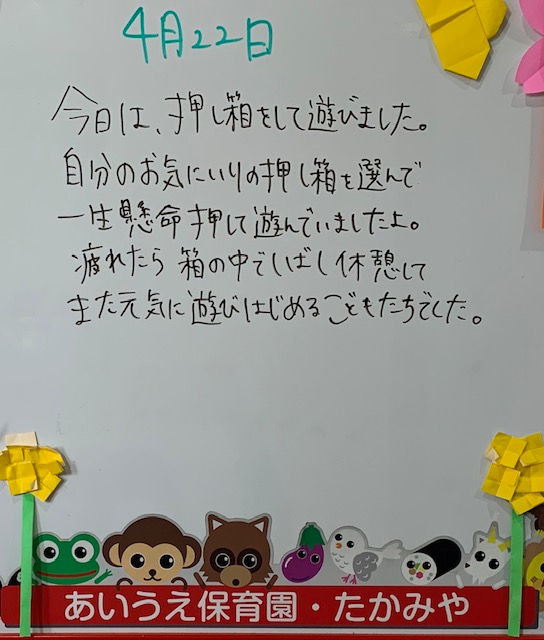 4月22日
今日は、押し箱をして遊びました。
自分のお気にいりの押し箱を選んで
一生懸命押して遊んでいましたよ。
疲れたら箱の中でしばし休憩して
また元気に遊びはじめるこどもたちでした。
あいうえ保育園・たかみや